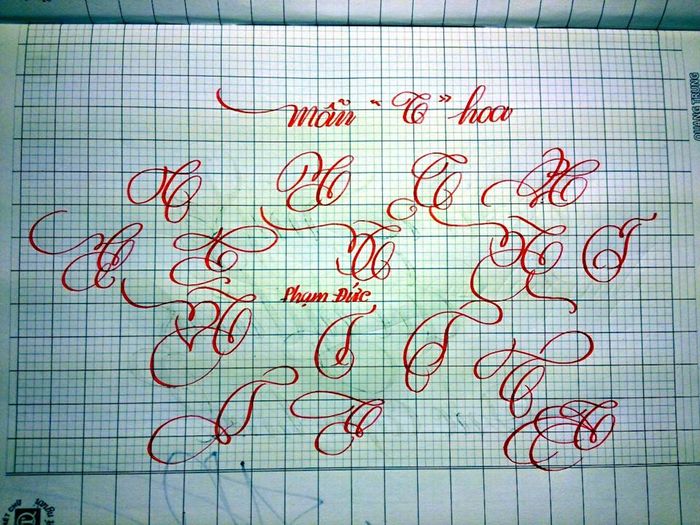 mẫu " T " hoa
T T T T
T T T T T
Phạm Đức
T T T T
T T T
QUANG TRUNG